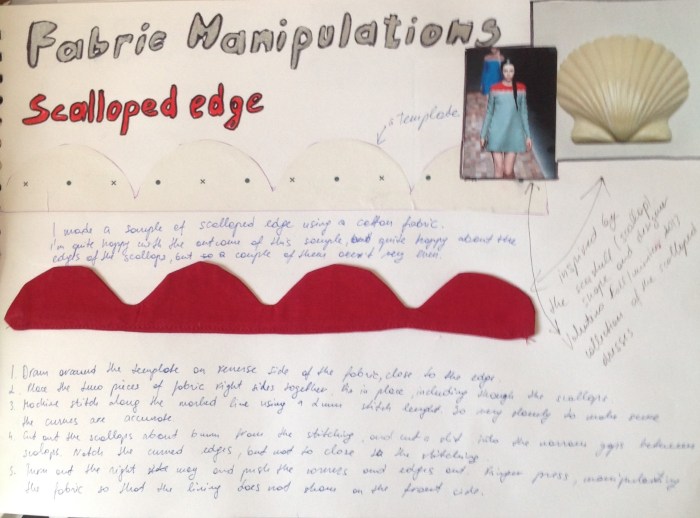 Fabric Manipulations
Scalloped edge
Template
I made a sample of scalloped edge using a cotton fabric.
I'm quite happy with the outcome of this sample, quite happy about the
edges of the scallops, but a couple of them aren't very even.
inspired by
the seashell (scallop)
shape and designer
Valentino Fall/
collection of the scalloped
dresses
1. Draw around the template on reverse side of the fabric, close to the edge.
2. Place the two pieces of fabric right sides together. Pin in place, including through the scallops
3. Machine stitch along the marked line using a 2mm stitch lenght. Go very slowly to make sure
the curves are accurate.
4. Cut out the scallops about 6mm from the stitching, and cut a slit into the narrow gaps between
scallops. Notch the curved edges, but not to close to the stitching.
5. Turn out the right side way and push the corners and edges out. Finger press, manipulating
the fabric so that the lining does not show on the front side.